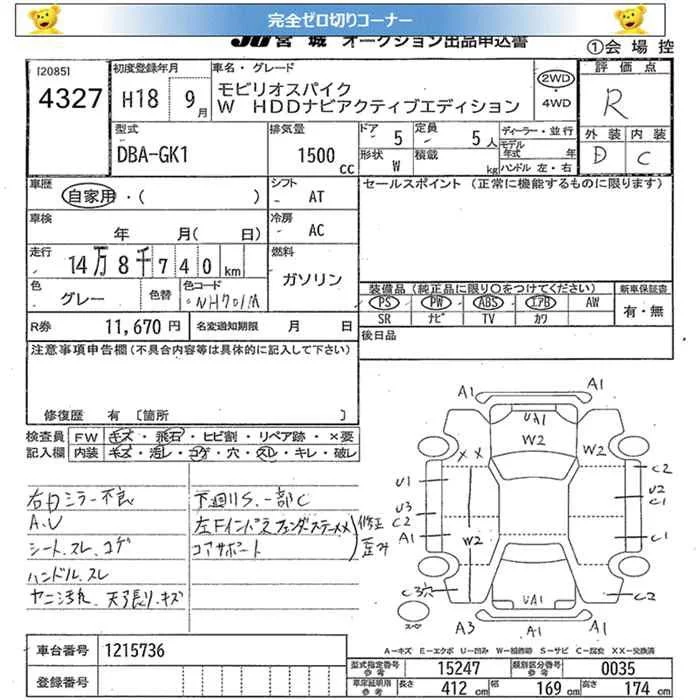 完全ゼロ切りコーナー
JU 宮城 オークション出品申込書
①会場控
[2085]
4327
初度登録年月
H18 9月
車名・グレード
モビリオスパイク
W HDDナビアクティブエディション
2WD
・
4WD
評価点
R
外装 内装
D C
型式
DBA-GK1
排気量
1500cc
ドア 5
定員 5人
形状 W
積載 kg
ディーラー・並行
モデル年式 年
ハンドル 左・右
車歴
自家用・( )
シフト
AT
セールスポイント (正常に機能するものに限ります)
車検
年 月( 日)
冷房
AC
走行
14万8千740km
燃料
ガソリン
色
グレー
色替
色コード
NH701M
装備品(純正品に限り○をつけてください)
PS PW ABS エアB AW
SR ナビ TV カワ
新車保証書
有・無
R券 11,670円
名変通知期限 月 日
後日品
注意事項申告欄(不具合内容等は具体的に記入して下さい)
修復歴 有 [箇所 ]
検査員記入欄
FW キズ・飛石・ヒビ割・リペア跡・×要
内装 キズ・汚レ・コゲ・穴・スレ・キレ・破レ
右自ミラー不良
A.U
シート.スレ.コゲ
ハンドル.スレ
ヤニ汚れ.天張り.キズ
下廻りS.一部C
左Fインドエフェンダステーメメ
コアサポート
修正
歪み
A1
A1
UA1
W2
X X
W2
U1
U3
C2
A1
W2
C2
U2
C1
C1
C3穴
C2
UA1
A3
A1
スペア
A=キズ E=エクボ U=凹み W=補修跡 S=サビ C=腐食 XX=交換済
車台番号 1215736
登録番号
型式指定番号 参考 15247
類別区分番号 参考 0035
車庫証明用 参考 長さ 412cm 幅 169cm 高さ 174cm